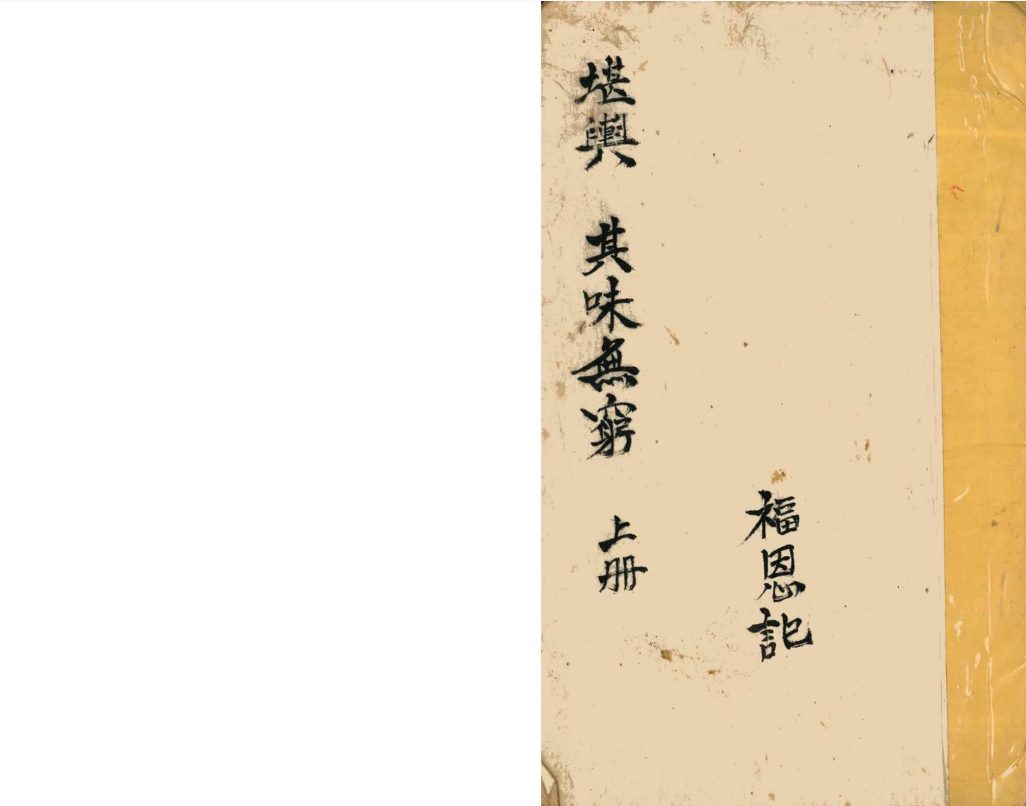 福恩記
堪輿 其味無窮 上册